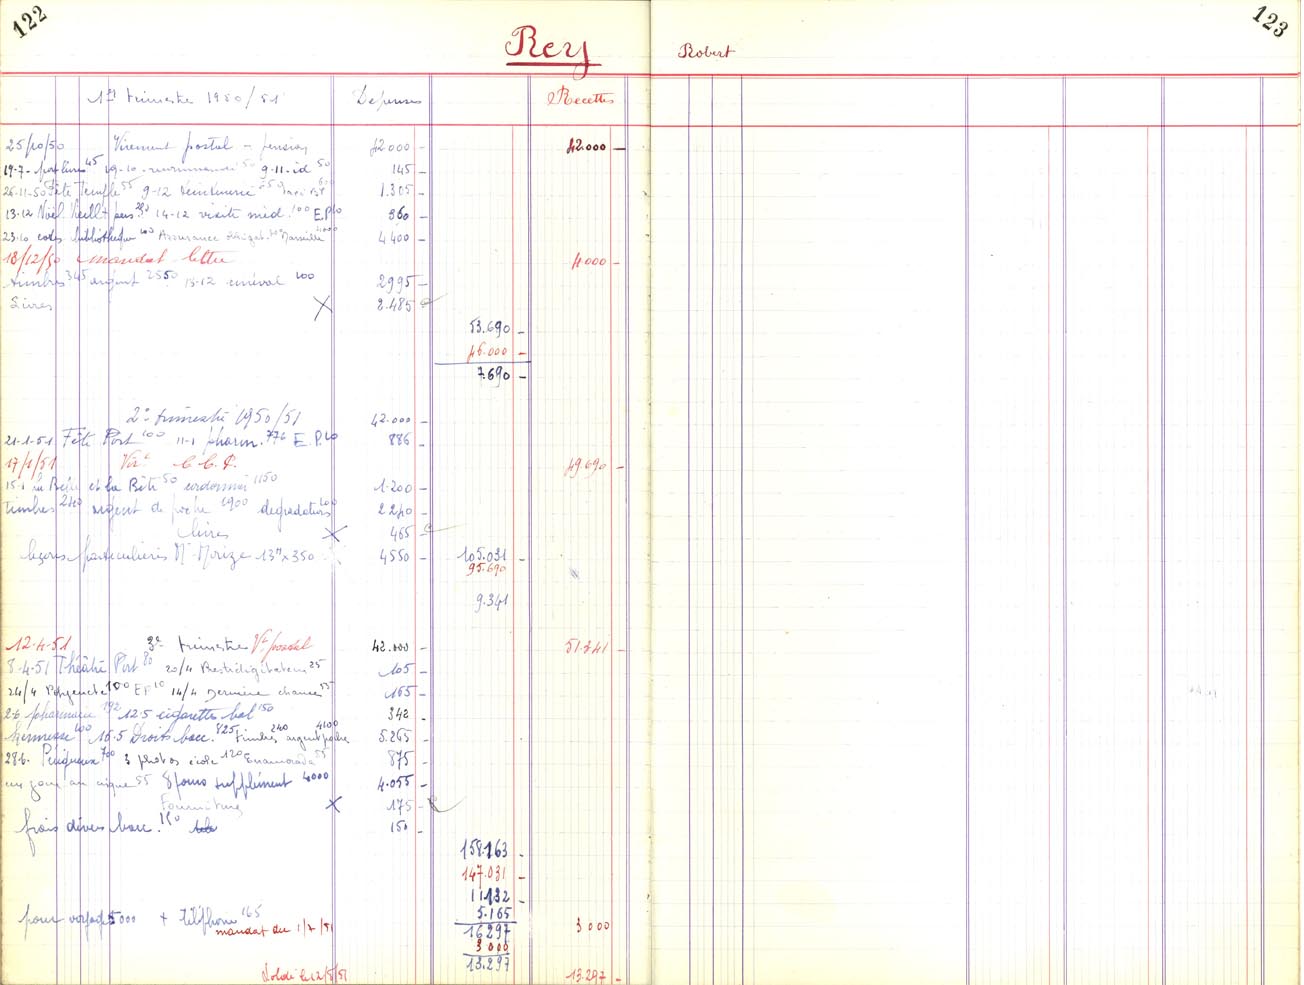 122
123
Rey
Robert
1er trimestre 1950/51 Dépenses Recettes
25/10/50 Virement postal - pension 42.000 - 42.000 -
19-7- 45 19-10- recommandé 50 9-11- id 50 145 -
26-11-50 Fête Temple 55 9-12 1.305 -
13-12 Noël 14-12 visite méd. 100 E.P. 10 360 -
23.10 codes bibliothèque 100 Assurance Marseille 4000 4400 -
18/12/50 mandat lettre 4000 -
timbres 345 argent 2550 13-12 cinéval 100 2995 -
Livres 2.485 -
53.690 -
46.000 -
7.690 -
2e trimestre 1950/51 42.000 -
21-1-51 Fête Port 100 11-1 pharm. 776 E.P. 10 886 -
17/1/51 Virt C.C.P. 49.690 -
15-1 la Belle et la Bête 50 cordonnier 1150 1.200 -
timbres 240 argent de poche 1900 dégradations 100 2240 -
Livres 465 -
Leçons particulières Mr Morize 13h x 350 4550 - 105.031 -
95.690
9.341
12-4-51 3e trimestre Vt postal 42.000 - 51.341 -
8-4-51 Théâtre Port 80 20/4 Prestidigitateur 25 105 -
24/4 100 E.P. 10 14/4 Dernière chance 55 165 -
2-6 pharmacie 192 12.5 cigarettes bal 150 342 -
Kermesse 100 16-5 Droits bacc. 825 Timbres 240 argent poche 4100 5.265 -
28-6. Périgueux 700 3 photos école 120 Enamorada 55 875 -
un jour au cirque 55 8 jours supplément 4000 4.055 -
Fournitures 175 -
frais divers bacc. 150 150 -
158.163 -
147.031 -
11132 -
5.165
pour voyage 5000 + téléphone 165 16297
mandat du 1/7/51 3000
3000
13.297
Soldé le 12/5/51 13.297 -